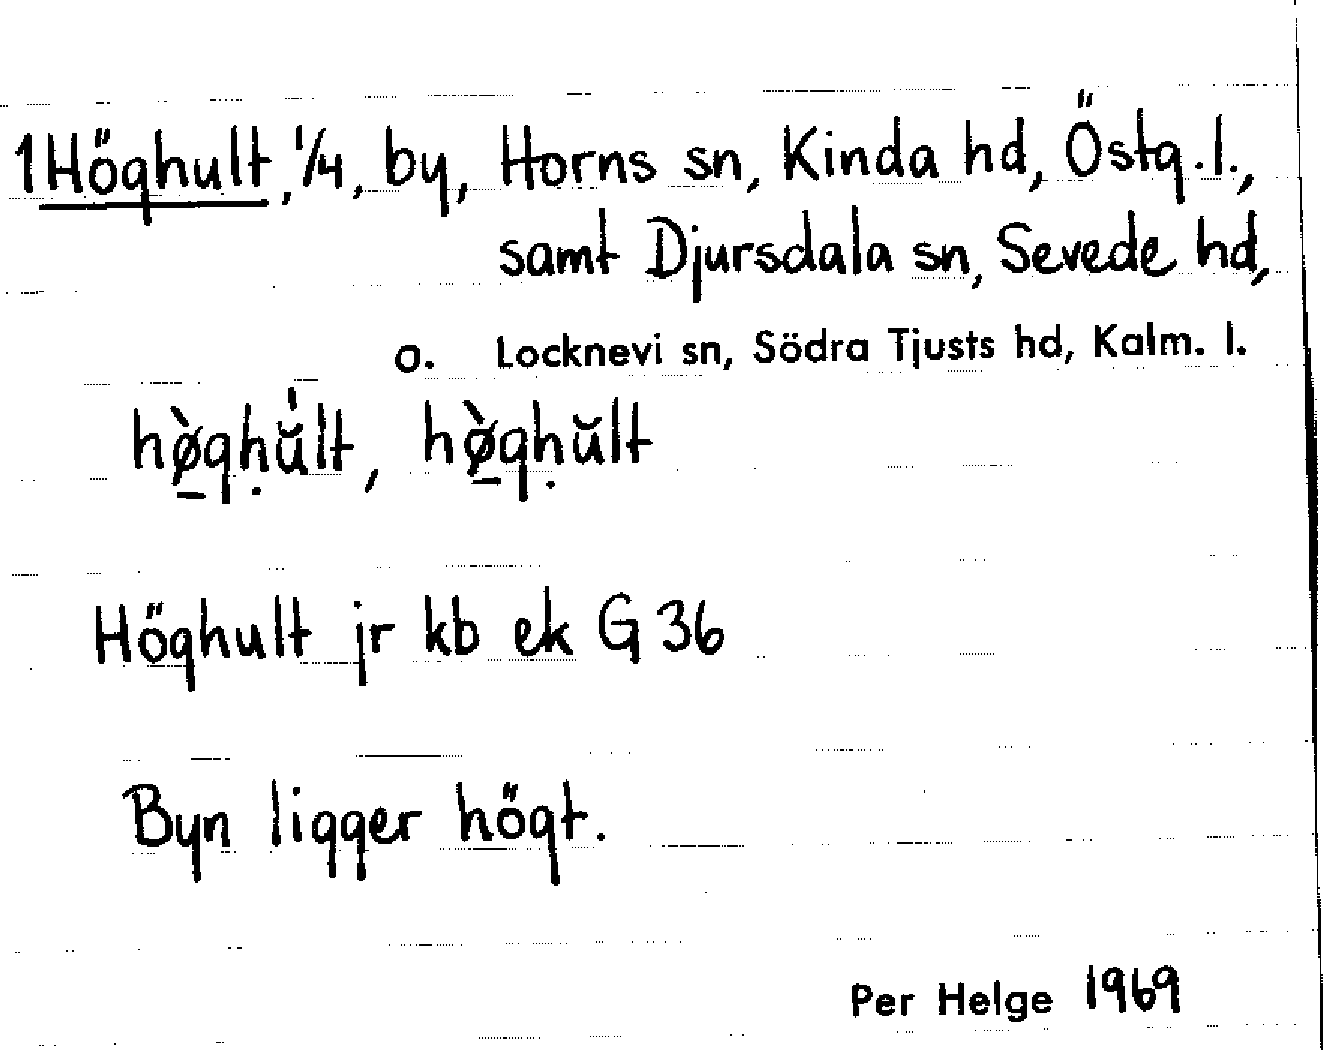 1 Höghult, 1/4, by, Horns sn, Kinda hd, Östg.l.,
samt Djursdala sn, Sevede hd,
o. Locknevi sn, Södra Tjusts hd, Kalm. l.
hø̱̀gḥŭ̍lt, hø̱̀gḥŭlt
Höghult jr kb ek G 36
Byn ligger högt.
Per Helge 1969